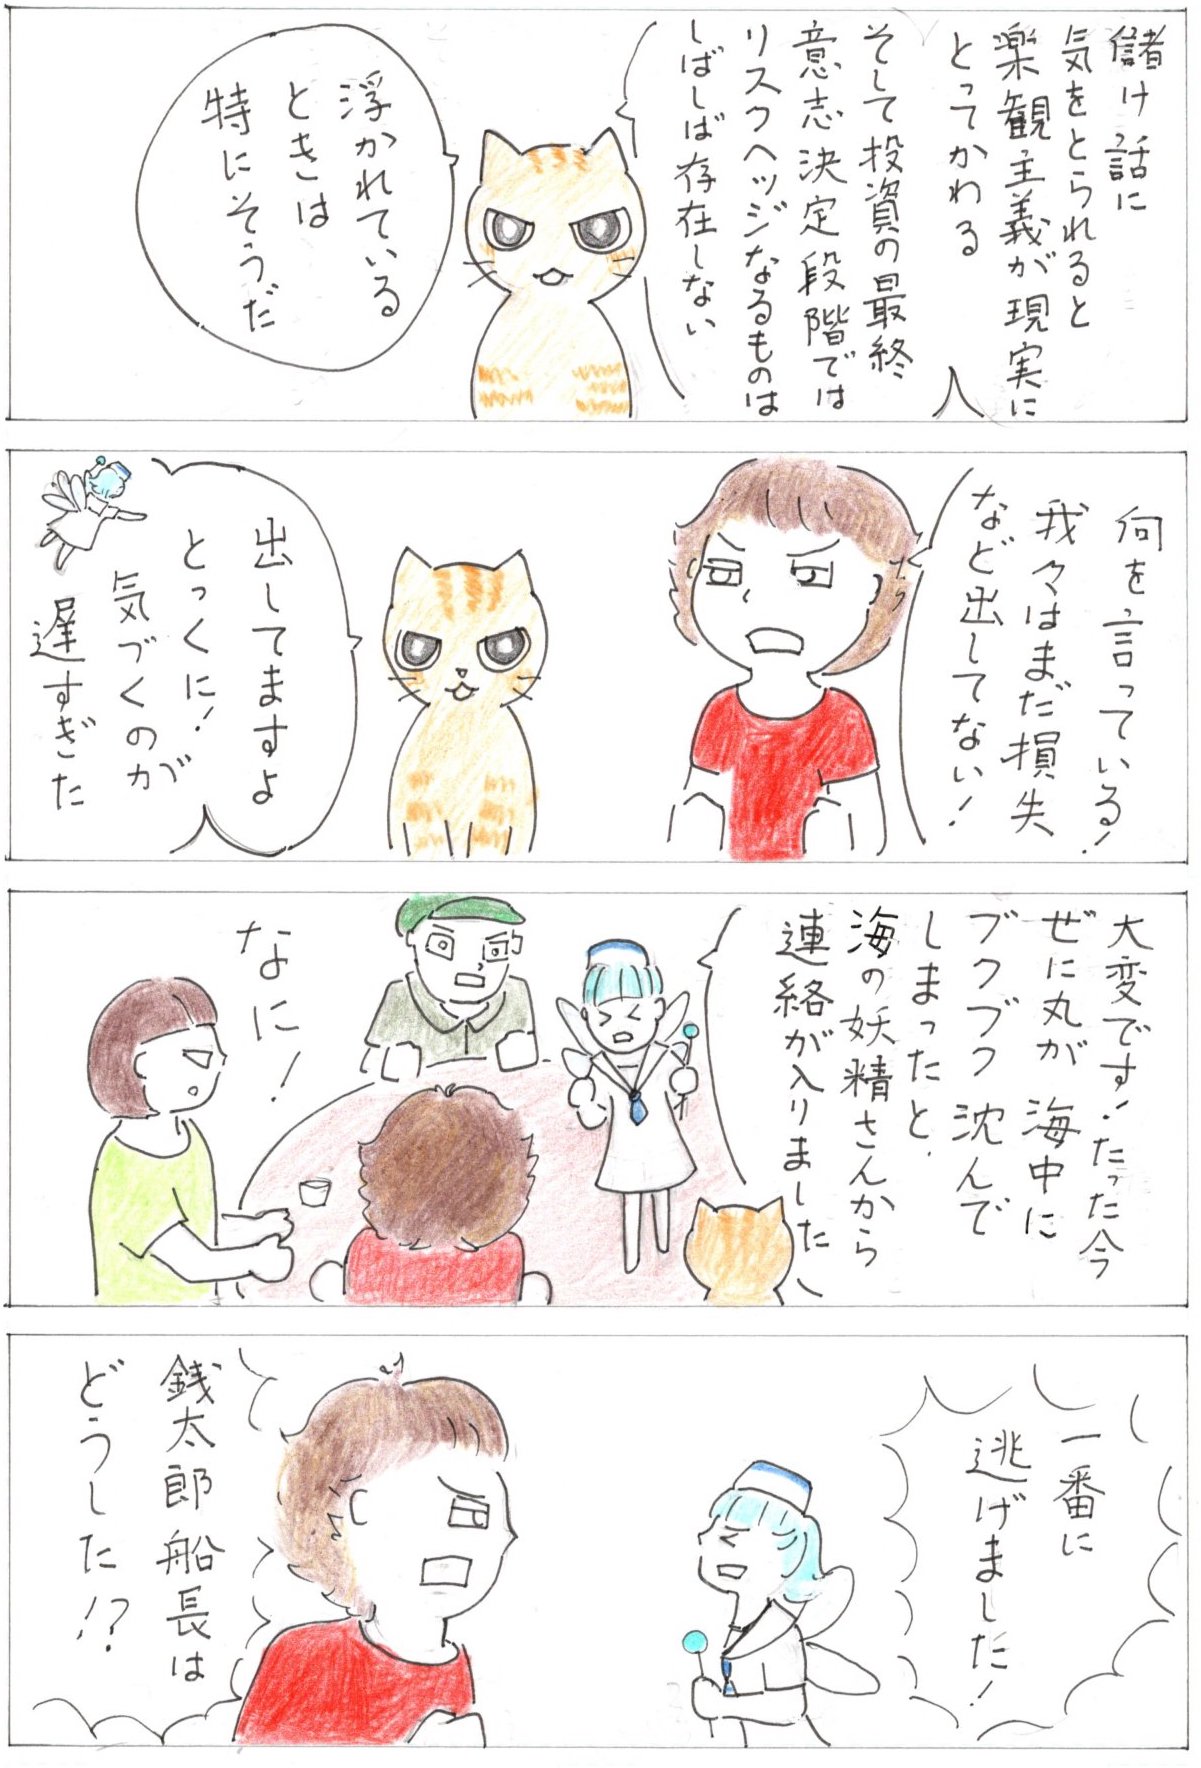 儲け話に
気をとられると
楽観主義が現実に
とってかわる
そして投資の最終
意志決定段階では
リスクヘッジなるものは
しばしば存在しない
浮かれている
ときは
特にそうだ
何を言っている!
我々はまだ損失
など出してない!
出してますよ
とっくに!
気づくのが
遅すぎた
大変です!たった今
ぜに丸が海中に
ブクブク沈んで
しまったと、
海の妖精さんから
連絡が入りました
なに!
一番に
逃げました!
銭太郎船長は
どうした!?